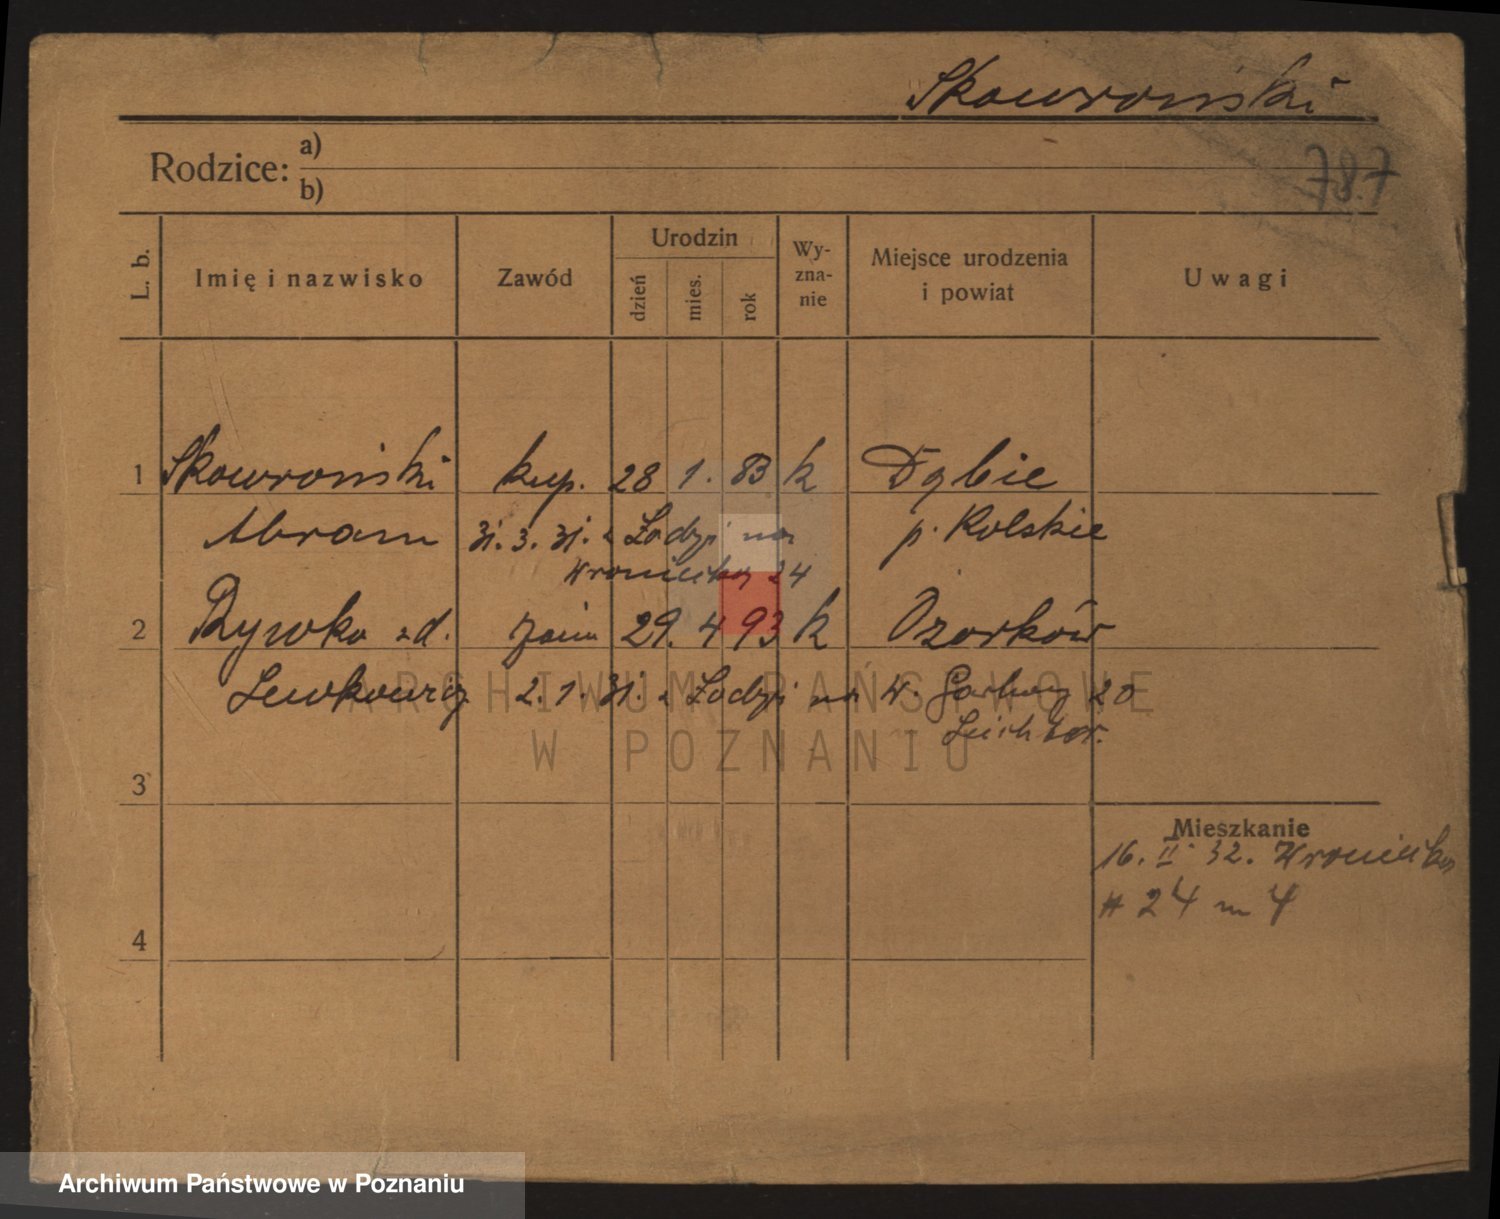 Skowroński
Rodzice: a)
b)
787
L. b.
Imię i nazwisko
Zawód
Urodzin
dzień
mies.
rok
Wy-
zna-
nie
Miejsce urodzenia
i powiat
Uwagi
1 Skowroński kup. 28 1. 83 Dąbie
Abram 31. 3. 31. z Łodzi na p. Kolskie
Wroniecką 24
2 Rywka zd. 29. 4 93 Ozorków
Lewkowicz 2. 1. 31. z Łodzi na W. Garbary 20
3
4
Mieszkanie
16. II. 32. Wroniecka
24 m 4
ARCHIWUM PAŃSTWOWE
W POZNANIU
Archiwum Państwowe w Poznaniu